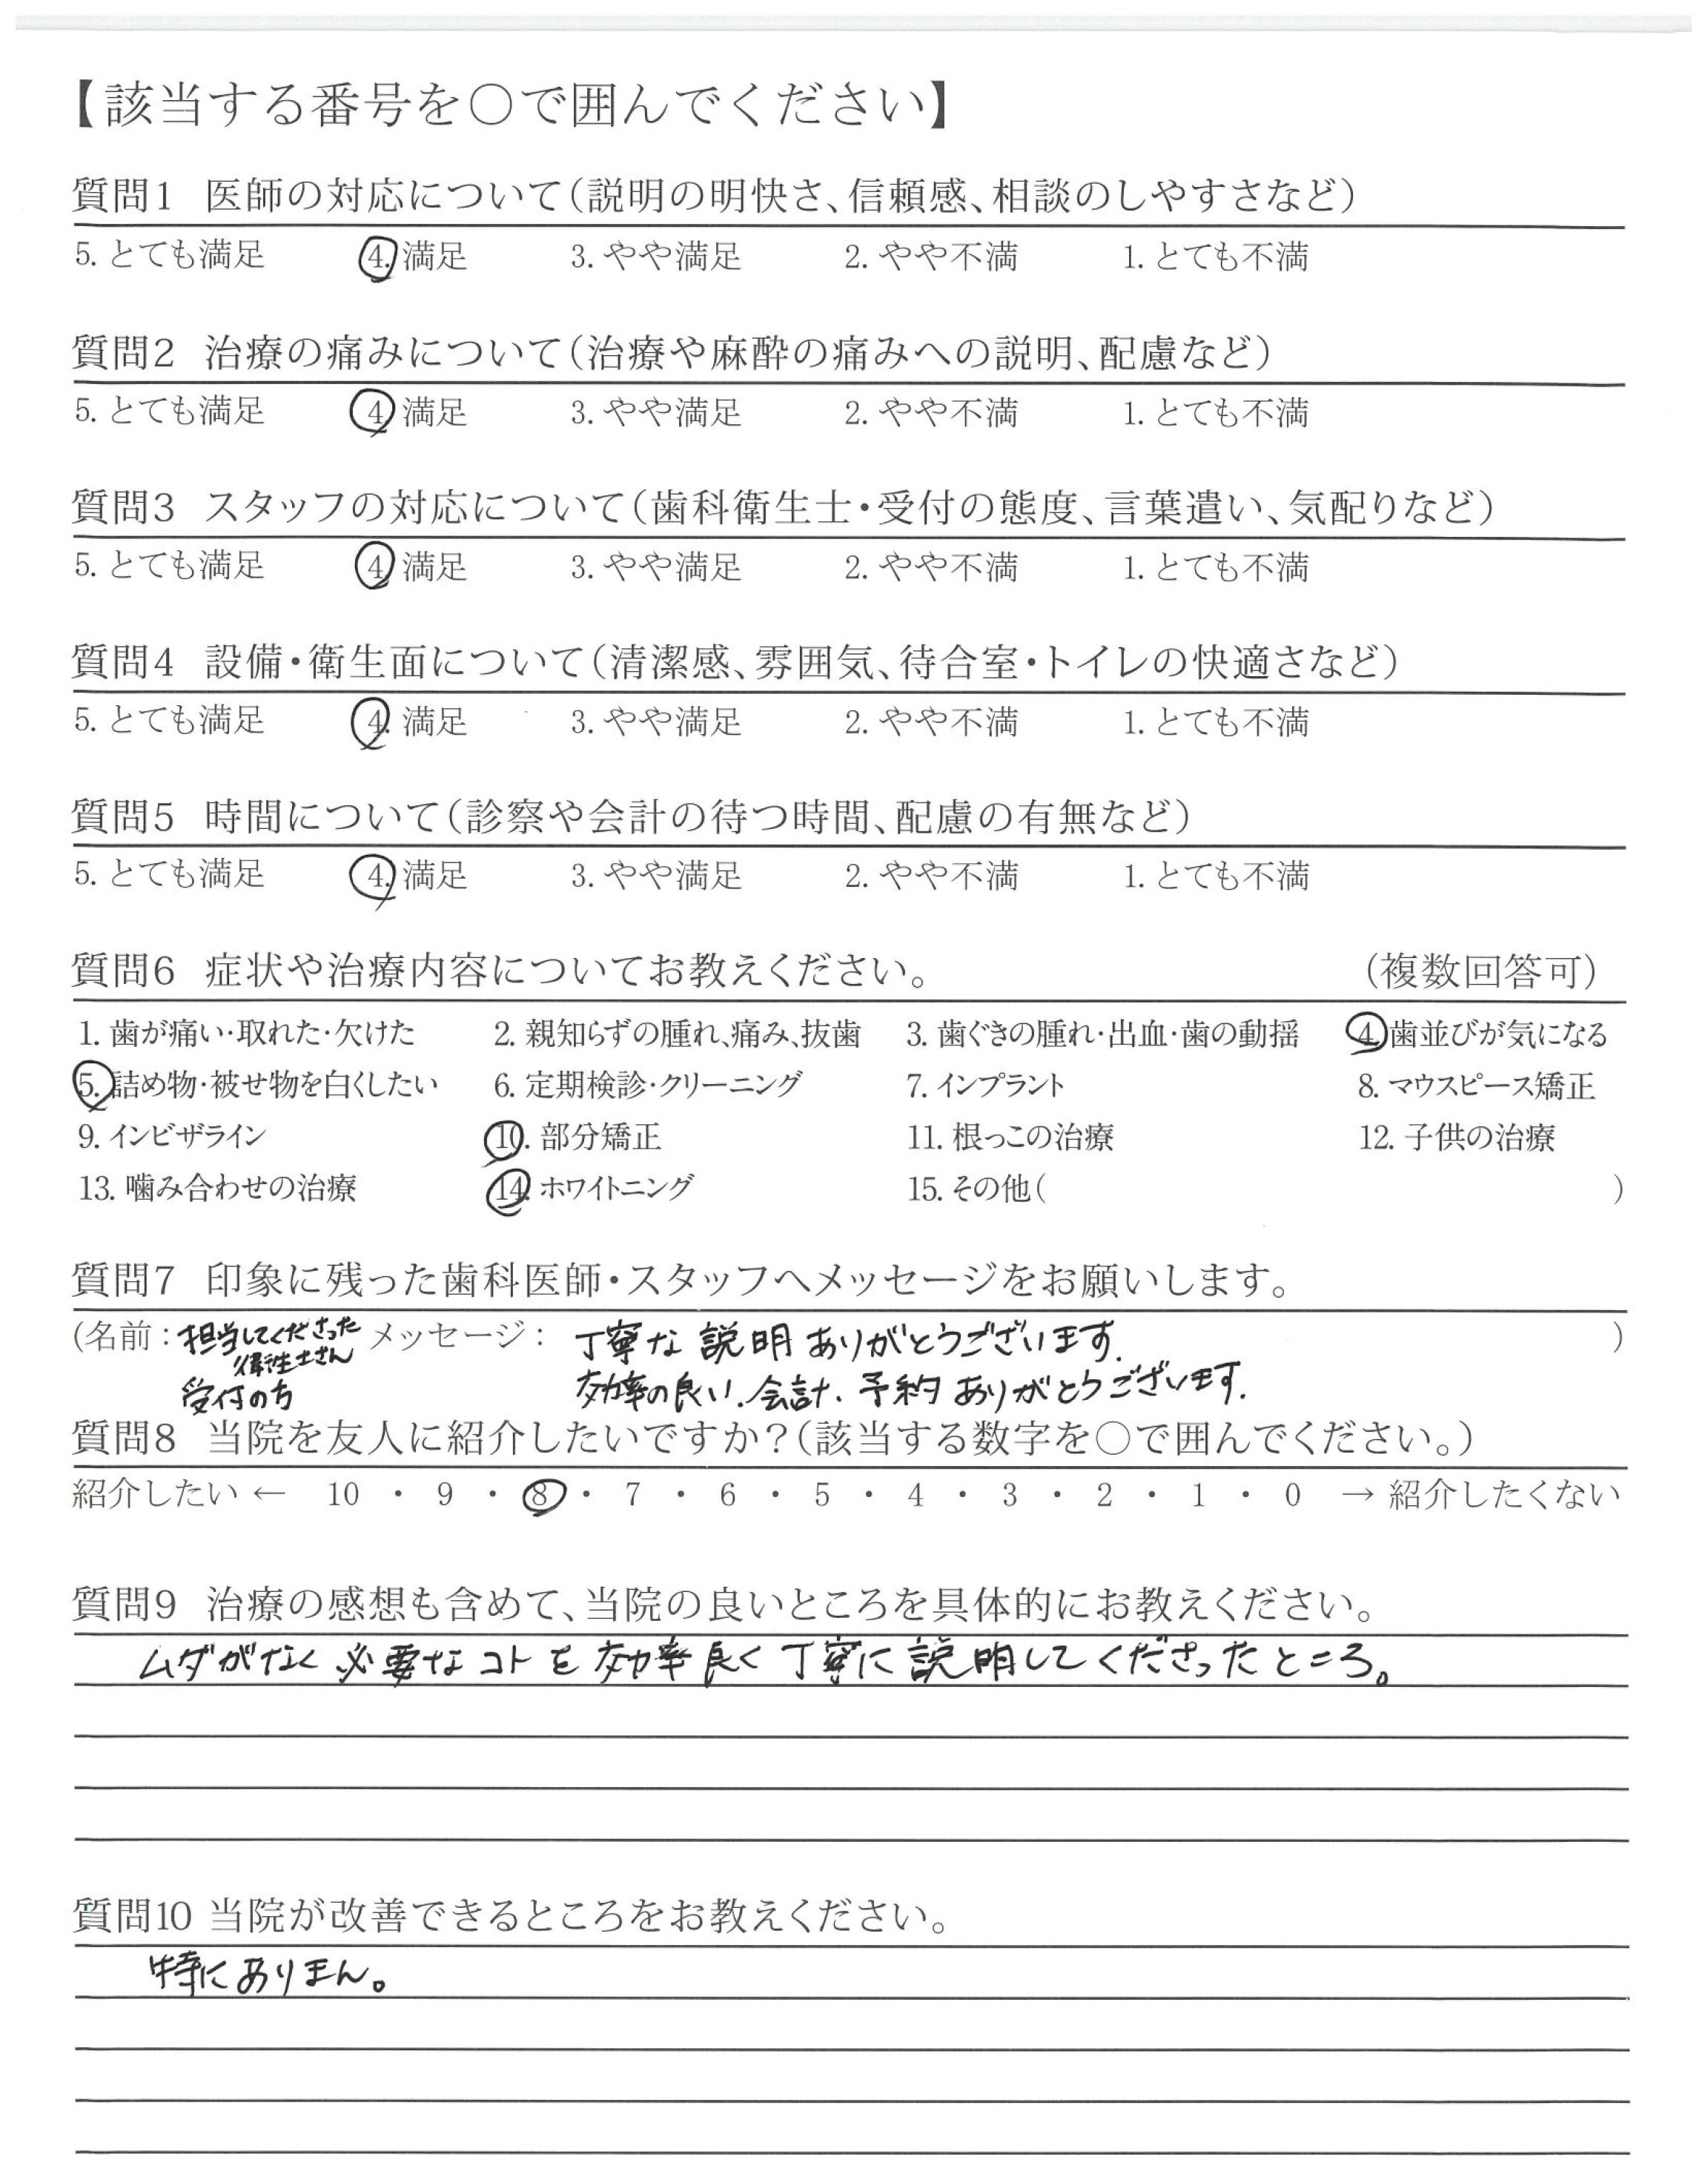 【該当する番号を○で囲んでください】
質問1 医師の対応について(説明の明快さ、信頼感、相談のしやすさなど)
5. とても満足 4. 満足 3. やや満足 2. やや不満 1. とても不満
質問2 治療の痛みについて(治療や麻酔の痛みへの説明、配慮など)
5. とても満足 4. 満足 3. やや満足 2. やや不満 1. とても不満
質問3 スタッフの対応について(歯科衛生士・受付の態度、言葉遣い、気配りなど)
5. とても満足 4. 満足 3. やや満足 2. やや不満 1. とても不満
質問4 設備・衛生面について(清潔感、雰囲気、待合室・トイレの快適さなど)
5. とても満足 4. 満足 3. やや満足 2. やや不満 1. とても不満
質問5 時間について(診察や会計の待つ時間、配慮の有無など)
5. とても満足 4. 満足 3. やや満足 2. やや不満 1. とても不満
質問6 症状や治療内容についてお教えください。 (複数回答可)
1. 歯が痛い・取れた・欠けた 2. 親知らずの腫れ、痛み、抜歯 3. 歯ぐきの腫れ・出血・歯の動揺 4. 歯並びが気になる
5. 詰め物・被せ物を白くしたい 6. 定期検診・クリーニング 7. インプラント 8. マウスピース矯正
9. インビザライン 10. 部分矯正 11. 根っこの治療 12. 子供の治療
13. 噛み合わせの治療 14. ホワイトニング 15. その他( )
質問7 印象に残った歯科医師・スタッフへメッセージをお願いします。
(名前：担当してくださった メッセージ： 丁寧な説明ありがとうございます. )
衛生士さん
受付の方 効率の良い.会計.予約ありがとうございます.
質問8 当院を友人に紹介したいですか？(該当する数字を○で囲んでください。)
紹介したい ← 10 ・ 9 ・ 8 ・ 7 ・ 6 ・ 5 ・ 4 ・ 3 ・ 2 ・ 1 ・ 0 → 紹介したくない
質問9 治療の感想も含めて、当院の良いところを具体的にお教えください。
ムダがなく必要なコトを効率良く丁寧に説明してくださったところ。
質問10 当院が改善できるところをお教えください。
特にありません。